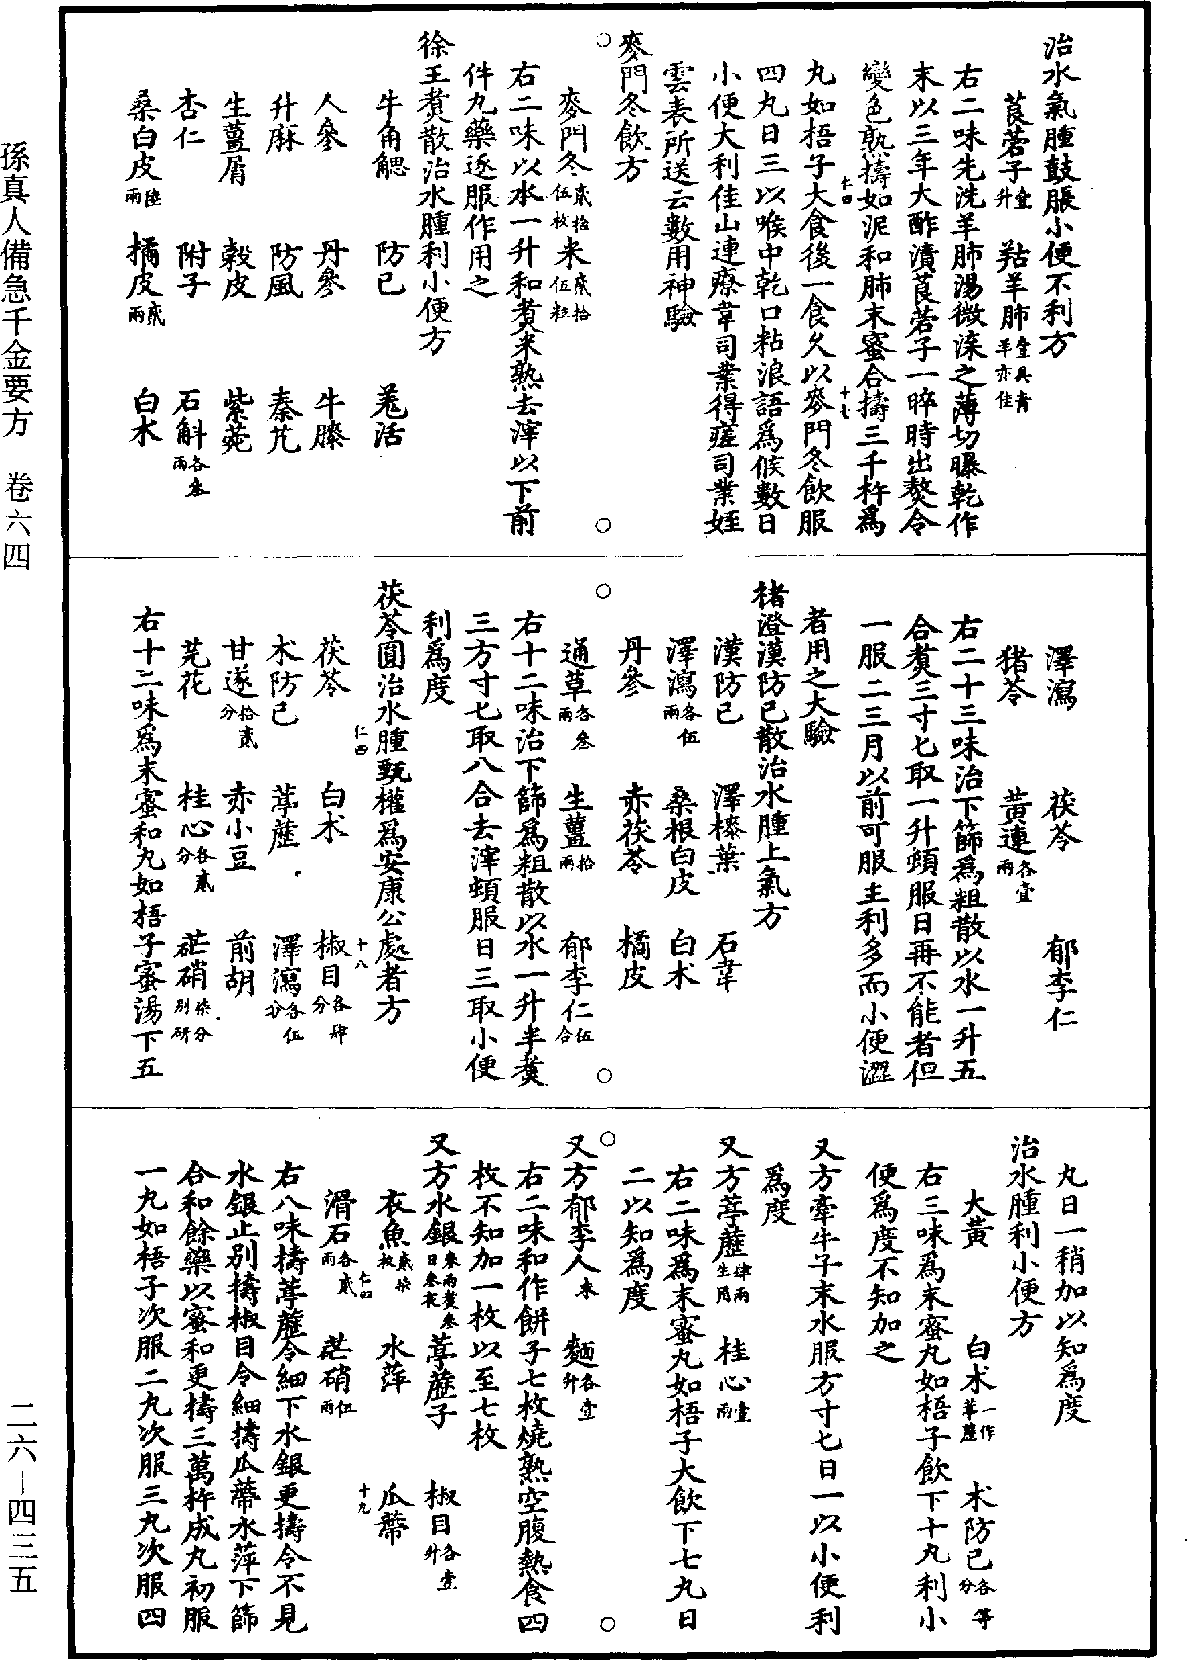 治水氣腫鼓脹小便不利方
莨菪子壹升 羖羊肺壹具青羊亦佳
右二味先洗羊肺湯微渫之薄切曝乾作
末以三年大酢漬莨菪子一晬時出熬令
變色熟擣如泥和肺末蜜合擣三千杵爲
仁四 十七
丸如梧子大食後一食久以麥門冬飲服
四丸日三以喉中乾口粘浪語爲候數日
小便大利佳山連療韋司業得瘥司業姪
雲表所送云數用神驗
麥門冬飲方
麥門冬貳拾伍枚 米貳拾伍粒
右二味以水一升和煑米熟去滓以下前
件丸藥逐服作用之
徐王煑散治水腫利小便方
牛角䚡 防已 羌活
人參 丹參 牛膝
升麻 防風 秦艽
生薑屑 榖皮 紫菀
杏仁 附子 石斛各叁兩
桑白皮陸兩 橘皮貳兩 白术
澤瀉 茯苓 郁李仁
猪苓 黃連各壹兩
右二十三味治下篩爲粗散以水一升五
合煑三寸匕取一升頓服日再不能者但
一服二三月以前可服主利多而小便澀
者用之大驗
褚澄漢防已散治水腫上氣方
漢防已 澤漆葉 石韋
澤瀉各伍兩 桑根白皮 白术
丹參 赤茯苓 橘皮
通草各叁兩 生薑拾兩 郁李仁伍合
右十二味治下篩爲粗散以水一升半煑
三方寸匕取八合去滓頓服日三取小便
利爲度
茯苓圓治水腫甄權爲安康公處者方
仁四 十八
茯苓 白术 椒目各肆分
木防已 葶藶 澤瀉各伍分
甘遂拾貳分 赤小豆 前胡
芫花 桂心各貳分 芒硝柒分別研
右十二味爲末蜜和丸如梧子蜜湯下五
丸日一稍加以知爲度
治水腫利小便方
大黃 白术一作葶藶 木防已各等分
右三味爲末蜜丸如梧子飲下十丸利小
便爲度不知加之
又方牽牛子末水服方寸匕日一以小便利
爲度
又方葶藶肆兩生用 桂心壹兩
右二味爲末蜜丸如梧子大飲下七丸日
二以知爲度
又方郁李人末 麵各壹升
右二味和作餅子七枚燒熟空腹熱食四
枚不知加一枚以至七枚
又方水銀叁兩煑叁日叁夜 葶藶子 椒目各壹升
衣魚貳柒枚 水萍 瓜蔕
仁四 十九
滑石各貳兩 芒硝伍兩
右八味擣葶藶令細下水銀更擣令不見
水銀止別擣椒目令細擣瓜蔕水萍下篩
合和餘藥以蜜和更擣三萬杵成丸初服
一丸如梧子次服二丸次服三丸次服四
孫真人備急千金要方 卷六四
二六—四三五